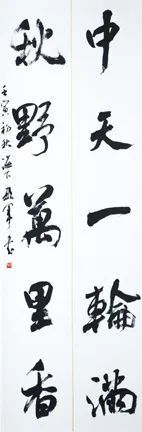 中天一輪滿
秋野萬里香
壬寅初秋海下